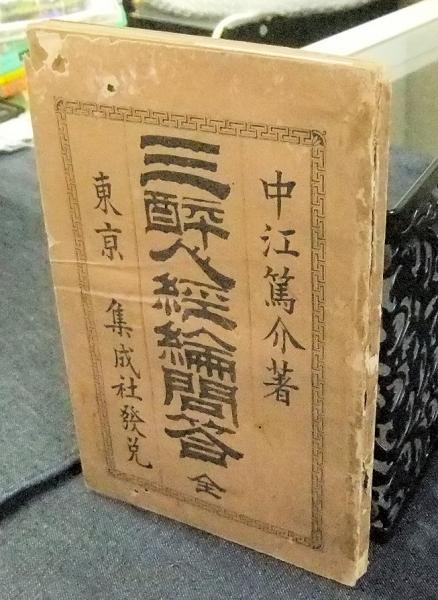 中江篤介著
三酔人経綸問答 全
東京 集成社發兌